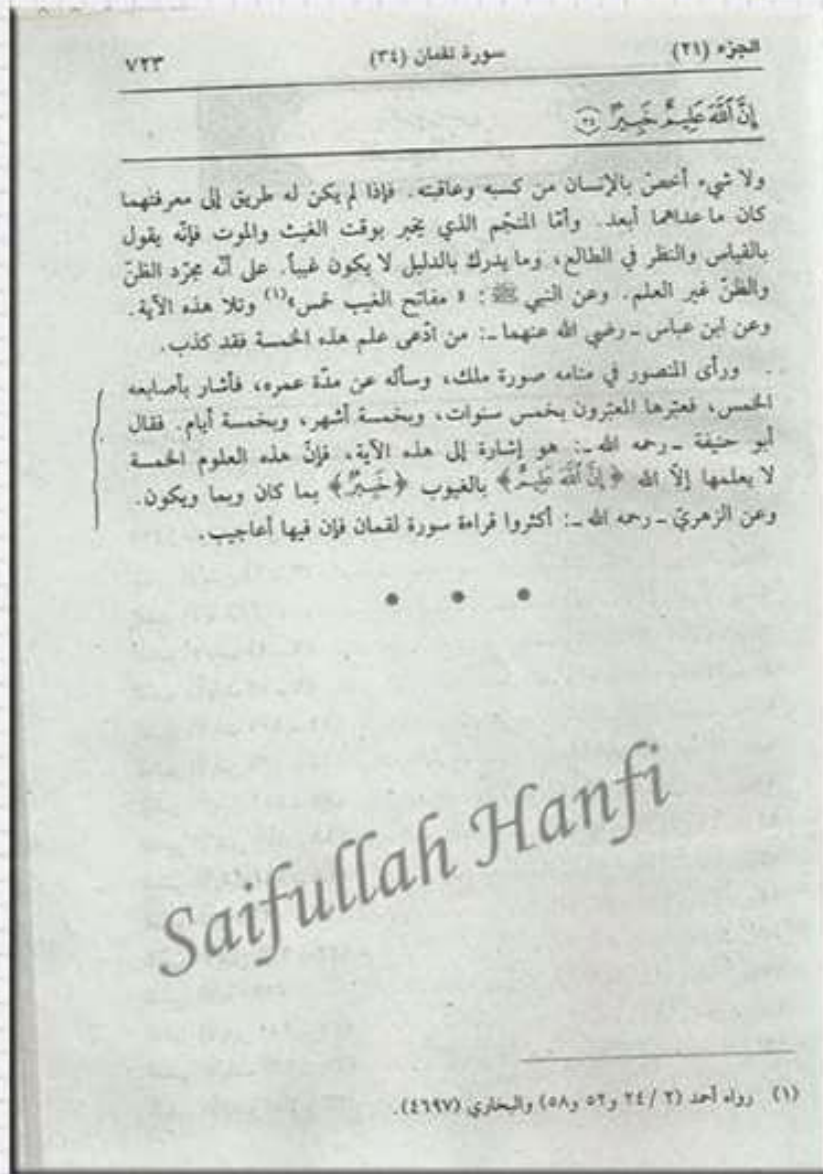 الجزء (٢١) سورة لقمان (٣٤) ٧٢٣
إِنَّ ٱللَّهَ عَلِيمٌ خَبِيرٌ ٣٤
ولا شيء أخصّ بالإنسان من كسبه وعاقبته. فإذا لم يكن له طريق إلى معرفتهما
كان ما عداهما أبعد. وأمّا المنجّم الذي يخبر بوقت الغيث والموت فإنّه يقول
بالقياس والنظر في الطالع، وما يدرك بالدليل لا يكون غيباً. على أنّه مجرّد الظنّ
والظنّ غير العلم. وعن النبي ﷺ: « مفاتح الغيب خمس»(١) وتلا هذه الآية.
وعن ابن عباس ـ رضي الله عنهما ـ: من ادّعى علم هذه الخمسة فقد كذب.
ورأى المنصور في منامه صورة ملك، وسأله عن مدّة عمره، فأشار بأصابعه
الخمس، فعبّرها المعبّرون بخمس سنوات، وبخمسة أشهر، وبخمسة أيام. فقال
أبو حنيفة ـ رحمه الله ـ: هو إشارة إلى هذه الآية، فإنّ هذه العلوم الخمسة
لا يعلمها إلّا الله ﴿إِنَّ ٱللَّهَ عَلِيمٌ﴾ بالغيوب ﴿خَبِيرٌ﴾ بما كان وبما ويكون.
وعن الزهريّ ـ رحمه الله ـ: أكثروا قراءة سورة لقمان فإن فيها أعاجيب.
Saifullah Hanfi
(١) رواه أحمد (٢ / ٢٤ و٥٢ و٥٨) والبخاري (٤٦٩٧).